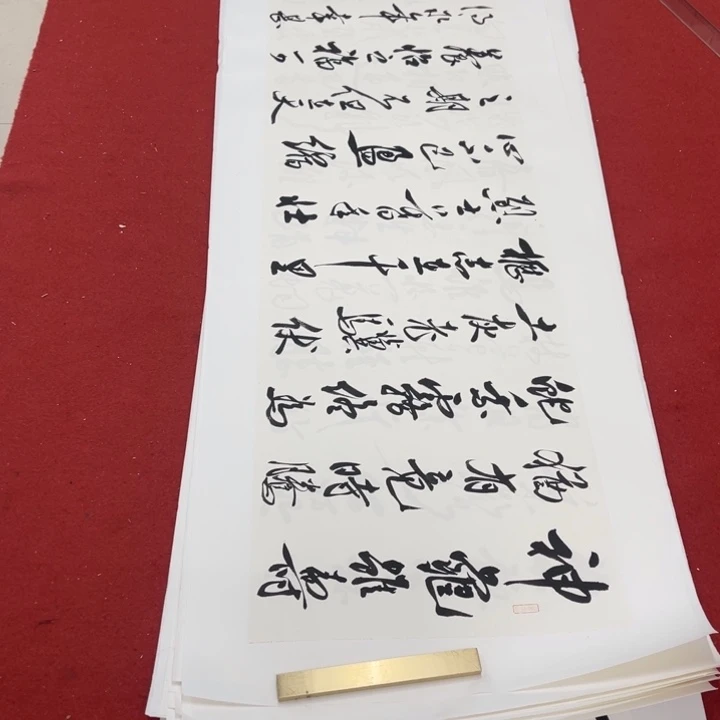 神龜雖壽
猶有竟時騰
蛇乘霧終為
土灰老驥伏
櫪志在千里
烈士暮年壯
心不已盈縮
之期不但在天
養怡之福可
得永年